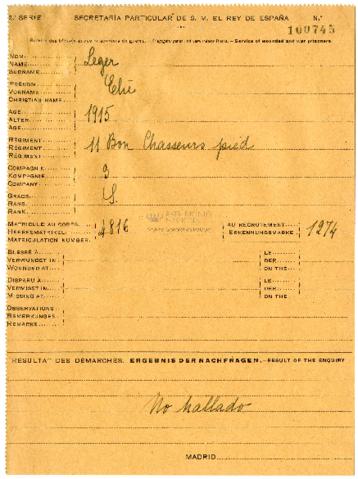 2.ª SERIE SECRETARÍA PARTICULAR DE S. M. EL REY DE ESPAÑA N.º
100745
Service of wounded and war prisoners.
NOM
NAME
SURNAME
Leger
PRÉNOM
VORNAME
CHRISTIAN NAME
Elie
AGE
ALTER
AGE
1915
RÉGIMENT
REGIMENT
REGIMENT
11 Bon Chasseurs pied
COMPAGNIE
KOMPAGNIE
COMPANY
3
GRADE
RANG
RANK
S.
MATRICULE AU CORPS
HEERESMATRIKEL
MATRICULATION NUMBER
4816
AU RECRUTEMENT
ERKENNUNGSMARKE
1274
BLESSÉ À
VERWUNDET IN
WOUNDED AT
LE
DER
ON THE
DISPARU À
VERMISST IN
MISSING AT
LE
DER
ON THE
OBSERVATIONS
BEMERKUNGEN
REMARKS
RÉSULTAT DES DÉMARCHES. ERGEBNIS DER NACHFRAGEN.—RESULT OF THE ENQUIRY
No hallado
MADRID